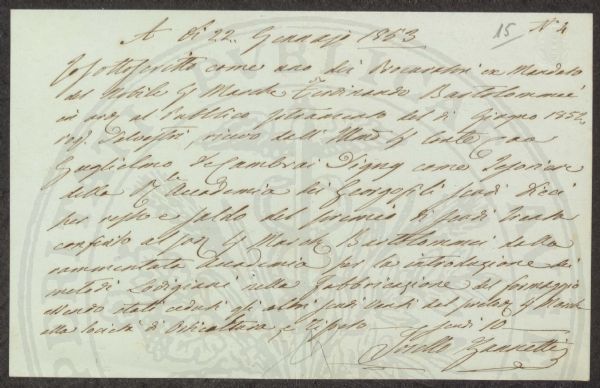 A dì 22. Gennajo 1853
15 N 4
Io sottoscritto come uno dei Procuratori ex Mandato
del Nobile Sig March. Ferdinando Bartolommei
in atti al Pubblico Istrumento del dì Giugno 1852
rog. ricevo dell' Illmo Sig Conte Cav
Guglielmo de Cambrai Digny come Tesoriere
della R. Accademia dei Georgofili scudi dieci
per resto e saldo del premio di scudi trenta
conferito al Sig March Bartolommei dalla
rammentata Accademia per la introduzione dei
metodi Lodigiani nella fabbricazione del formaggio
essendo stati ceduti gli altri scudi Venti dal Sig March
alla Società di Orticultura,
scudi 10
Zannetti